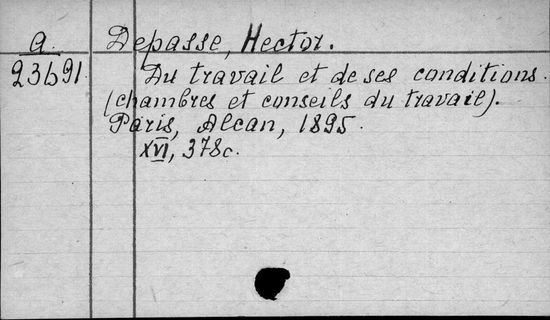 a.
23691.
Depasse, Hector.
Du travail et de ses conditions.
(chambres et conseils du travail).
Paris, Alcan, 1895.
XVI, 378c.